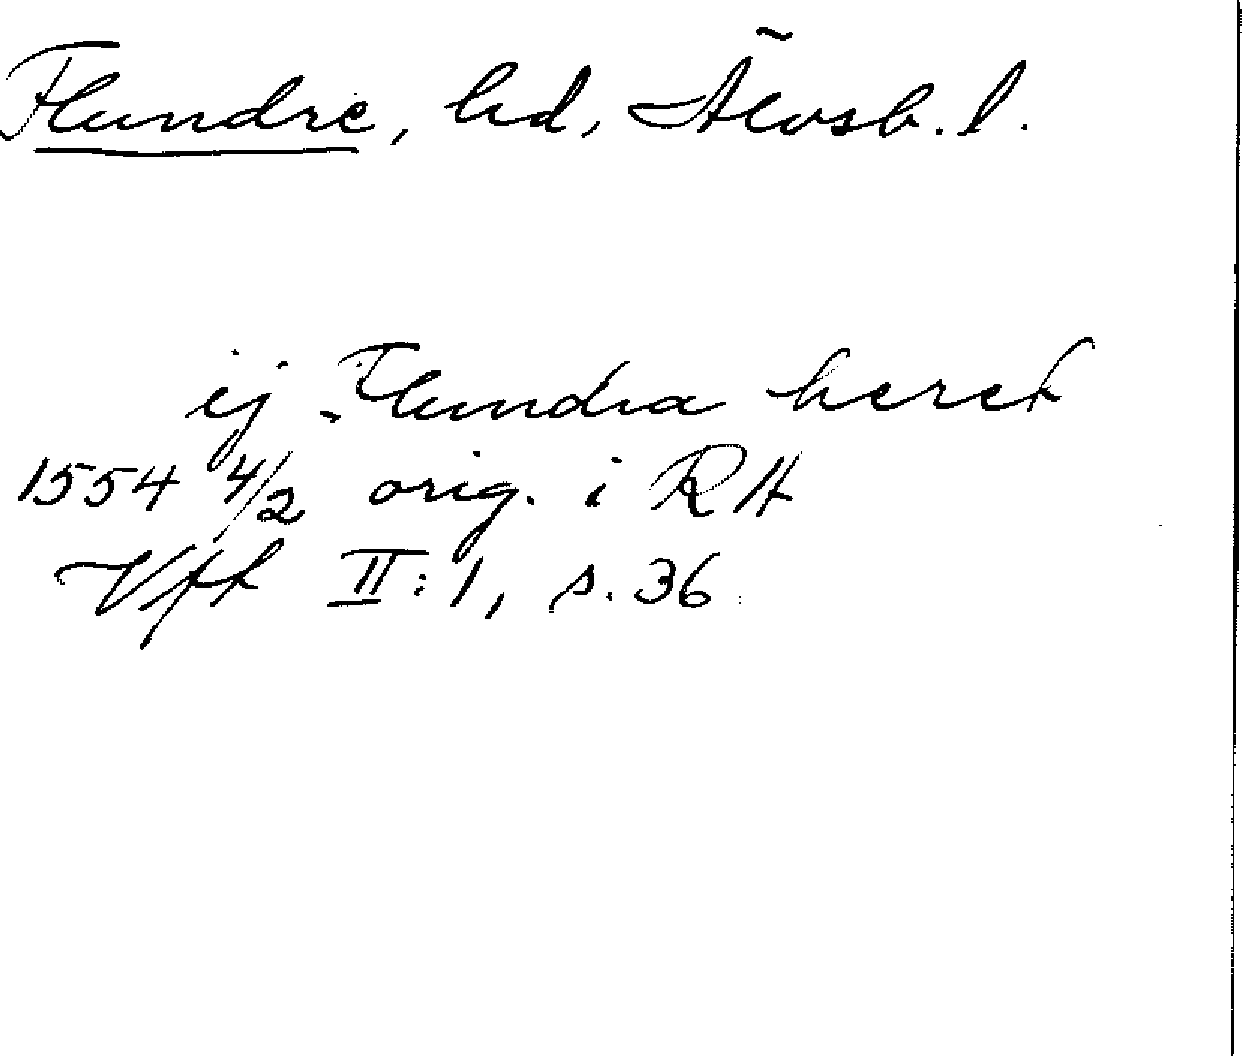 Flundre, hd, Älvsb. l.
ij Flundra heret
1554 4/2 orig. i RA
Vff II: 1, s. 36